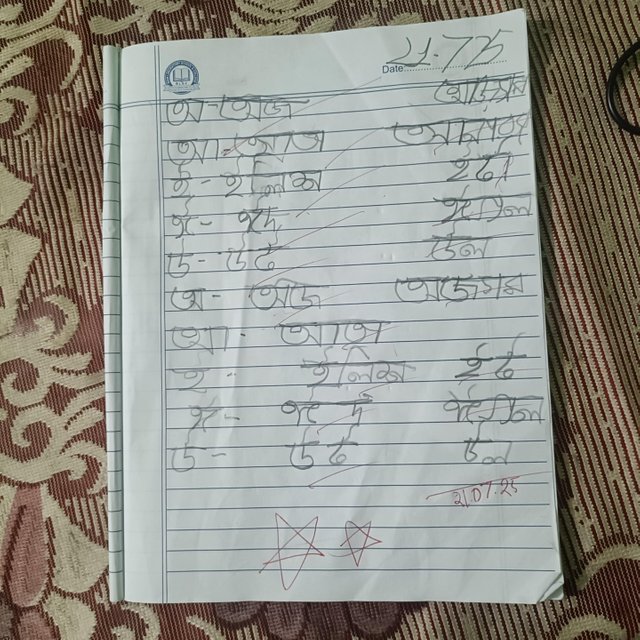 Date 21.7.25
অ-অজ অজগর
আ-আম আনারস
ই-ইলিশ ইট
ঈ-ঈদ ঈগল
উ-উট উল
অ- অজ অজগর
আ- আম
ই- ইলিশ ইট
ঈ- ঈদ ঈগল
উ- উট উল
21.07.25